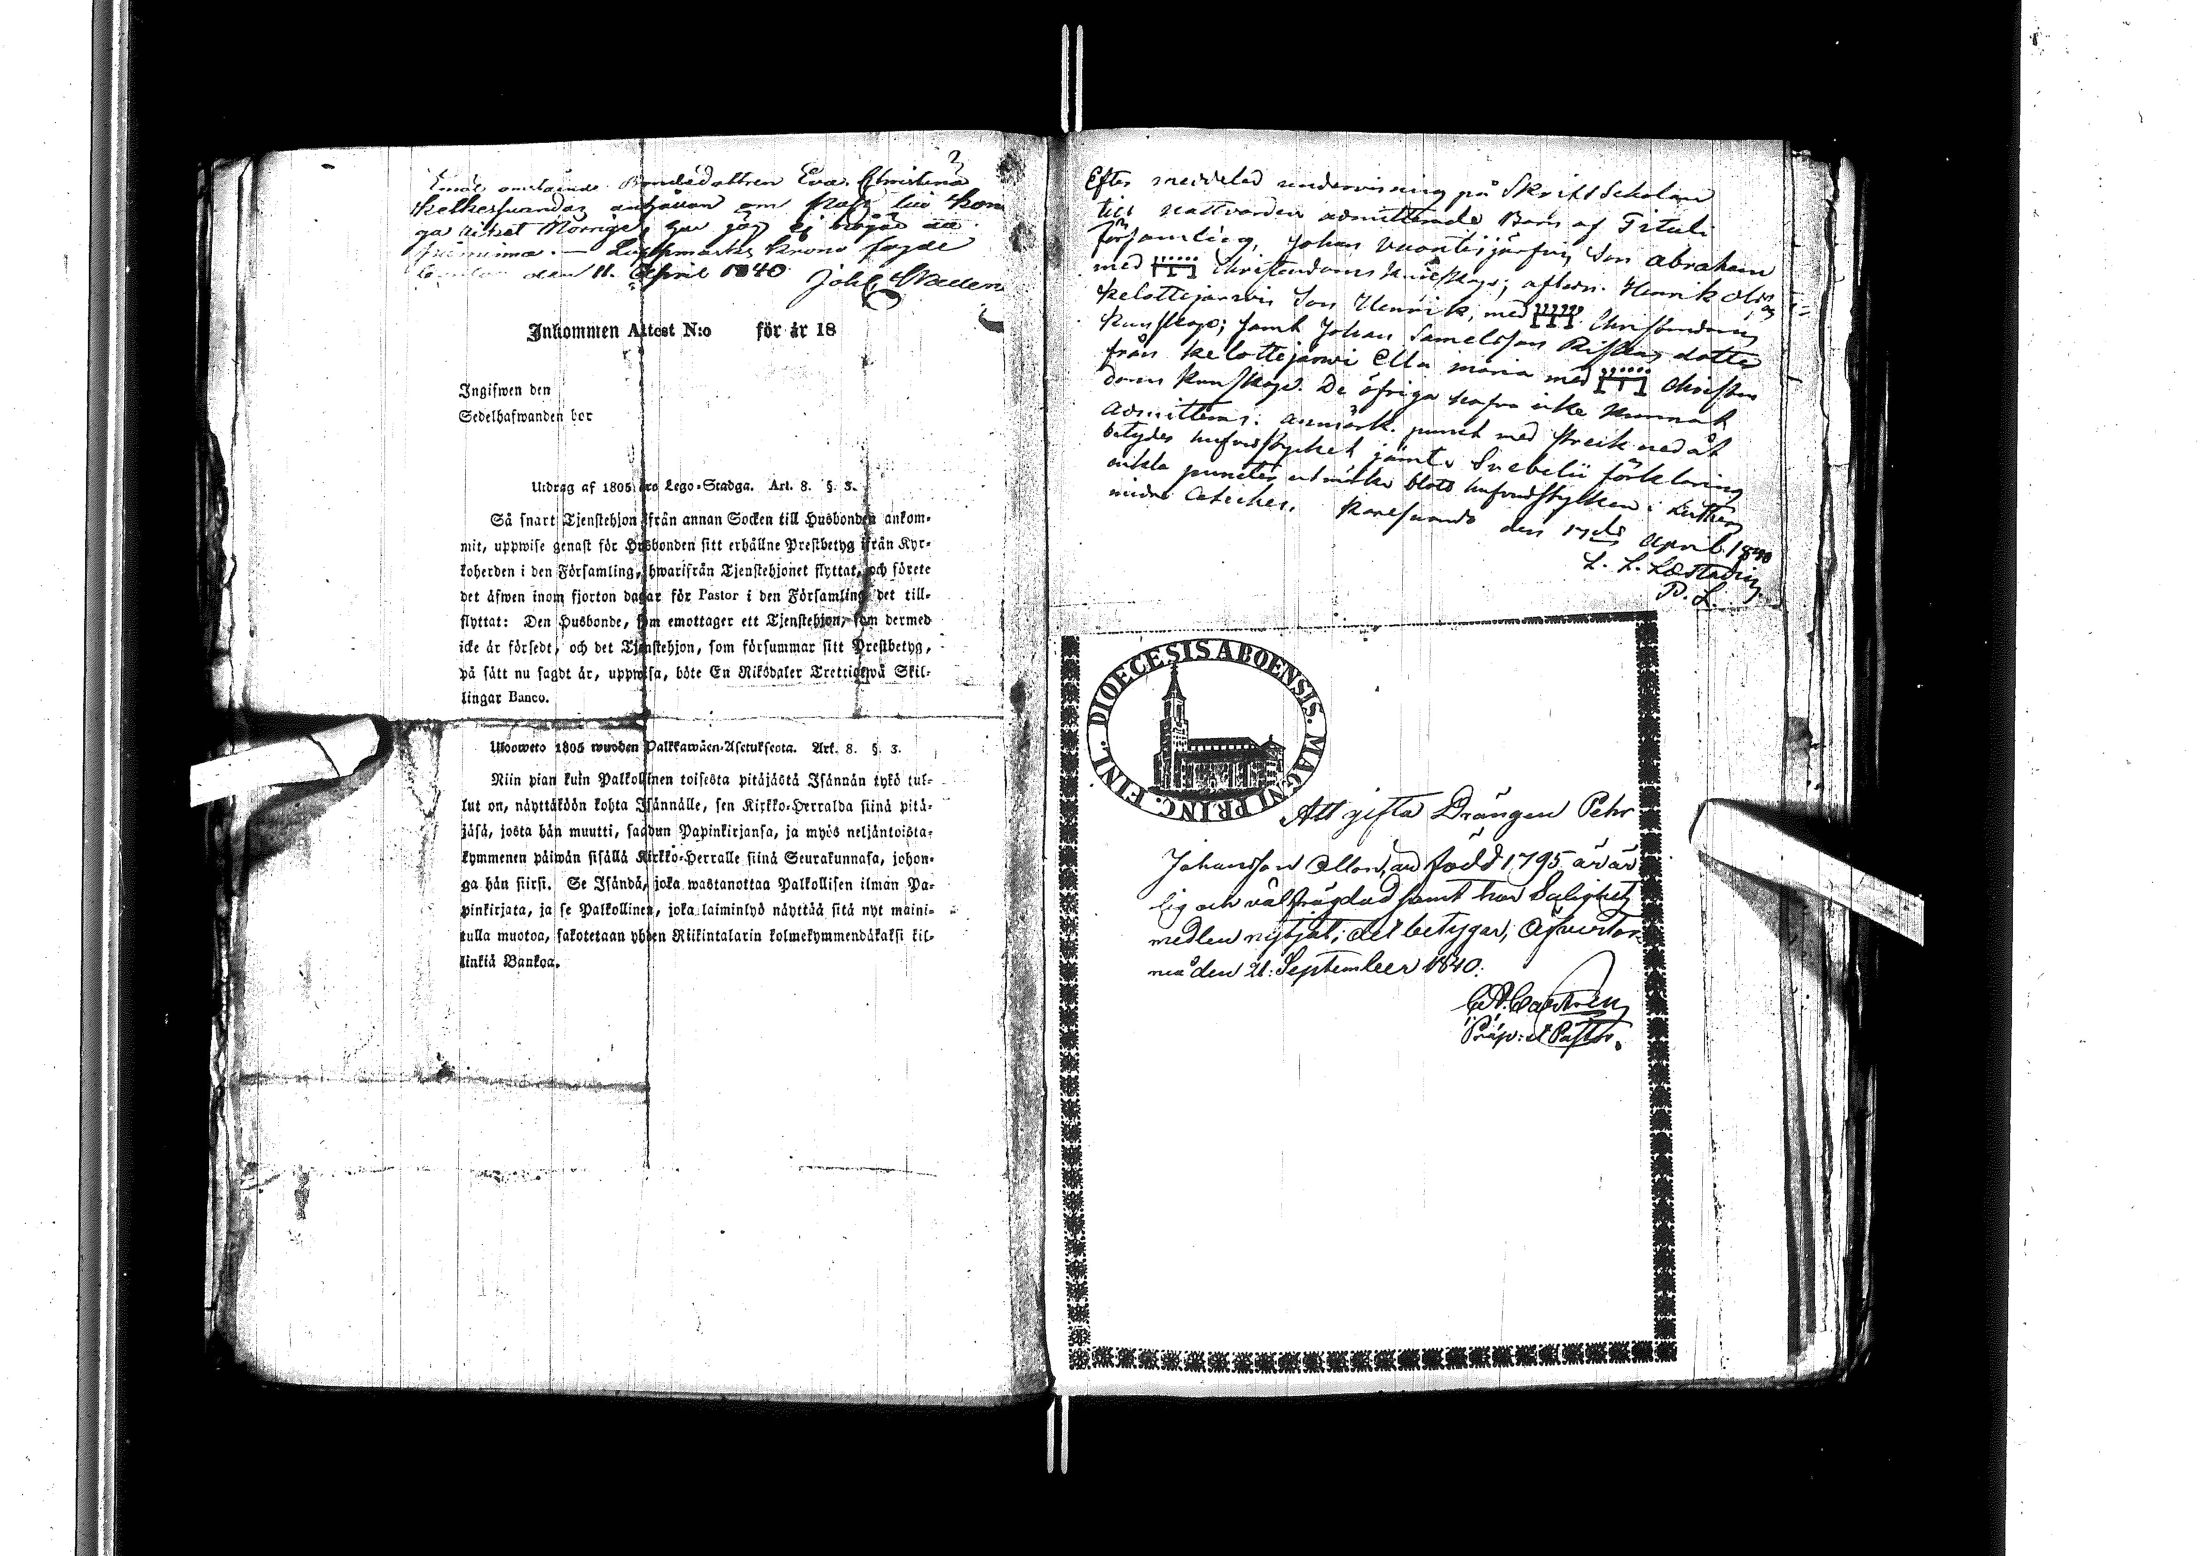 Emot omstående Bondedottren Eva Christina
Kelkessuandas anhållan om Pass till Kon
ga Riket Norrige, har jag ej något att
påminna. — Lappmarks Krono fogde
den 11. April 1840. Joh:
Inkommen Attest N:o för år 18
Ingifwen den
Sedelhafwanden bor
Utdrag af 1805 års Lego-Stadga. Art. 8. §. 3.
Så snart Tjenstehjon ifrån annan Socken till Husbonden ankom-
mit, uppwise genast för Husbonden sitt erhållne Prestbetyg ifrån Kyr-
koherden i den Församling, hwarifrån Tjenstehjonet flyttat, och förete
det äfwen inom fjorton dagar för Pastor i den Församling det till-
flyttat: Den Husbonde, som emottager ett Tjenstehjon, som dermed
icke är försedt, och det Tjenstehjon, som försummar sitt Prestbetyg,
på sätt nu sagdt är, uppwisa, böte En Riksdaler Trettiotwå Skil-
lingar Banco.
Ulosweto 1805 wuoden Palkkawäen-Asetuksesta. Art. 8. §. 3.
Niin pian kuin Palkollinen toisesta pitäjästä Isännän tykö tul-
lut on, näyttäköön kohta Isännälle, sen Kirkko-Herralda siinä pitä-
jäsä, josta hän muutti, saadun Papinkirjansa, ja myös neljäntoista-
kymmenen päiwän sisällä Kirkko-Herralle siinä Seurakunnasa, johon-
ga hän siirsi. Se Isändä, joka wastanottaa Palkollisen ilman Pa-
pinkirjata, ja se Palkollinen, joka laiminlyö näyttää sitä nyt maini-
tulla muotoa, sakotetaan yhden Riikintalarin kolmekymmendäkaksi kil-
linkiä Bankoa.
Efter meddelad undervisning på Skrift Scholan
till nattvarden admitterade Barn af Tituli
församling, Johan Vuontisjärfvis Son Abraham
med Christendoms Kunskap; aflidn. Henrik Ols
Kelottijärvis Son Henrik, med Christendoms
Kunskap; samt Johan Samelsson Ristas dotter
från Kelottijärvi Ella Maria med Christen
doms Kunskap. De öfriga hafva icke kunnat
admitteras. anmärk. punct med streck nedåt
betyder hufvudstycket jämte Svebelii förklaring
enkla puncter utmärka blott hufvudstycken i Luthers
mindre Cateches. Karesuando den 17de April 1840
L. L. Læstadius
P. L.
DIOECESIS ABOENSIS. MAGNI PRINC. FINL.
Att gifta Drängen Pehr
Johansson född 1795 är är
lig och välfrägdad samt har Salighets
medlen nyttjat; det betygar, Öfvertor-
neå den 21. September 1840.
Castrén
Prap: et Pastor.